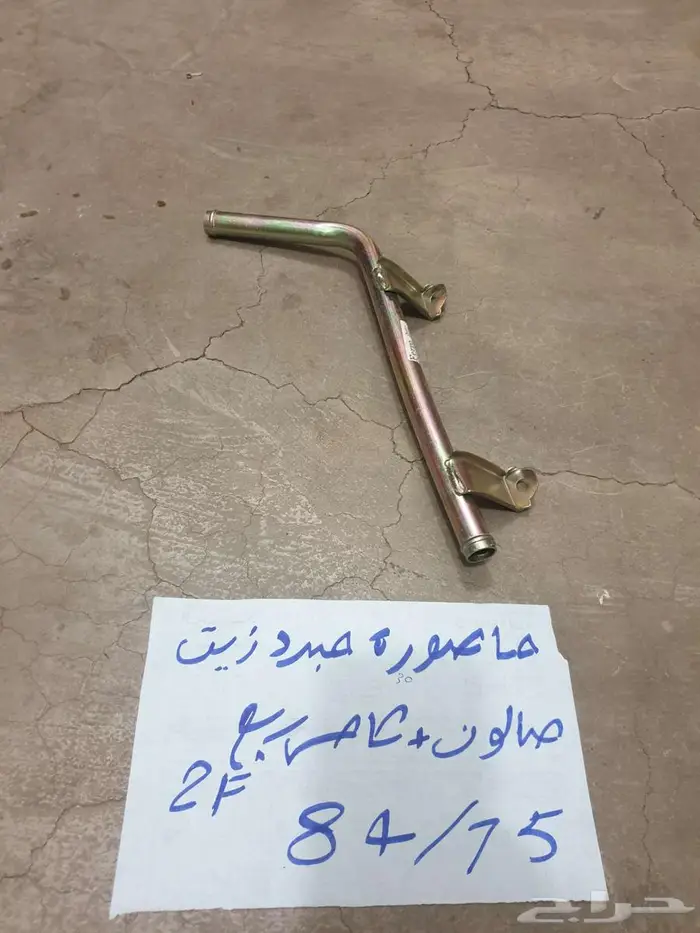 ماصوره مبرد زيت
صالون + شاص ربع
2F
84/75
حراج